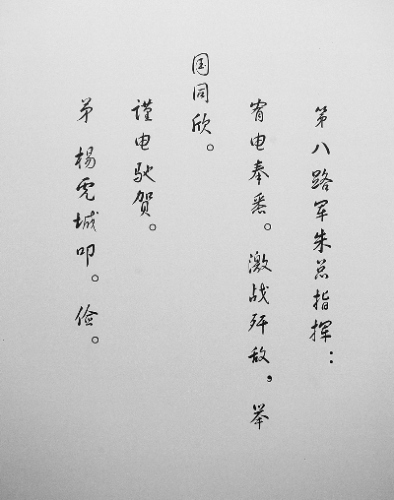 第八路军朱总指挥：
宥电奉悉。激战歼敌，举
国同欣。
谨电驰贺。
弟杨虎城叩。俭。